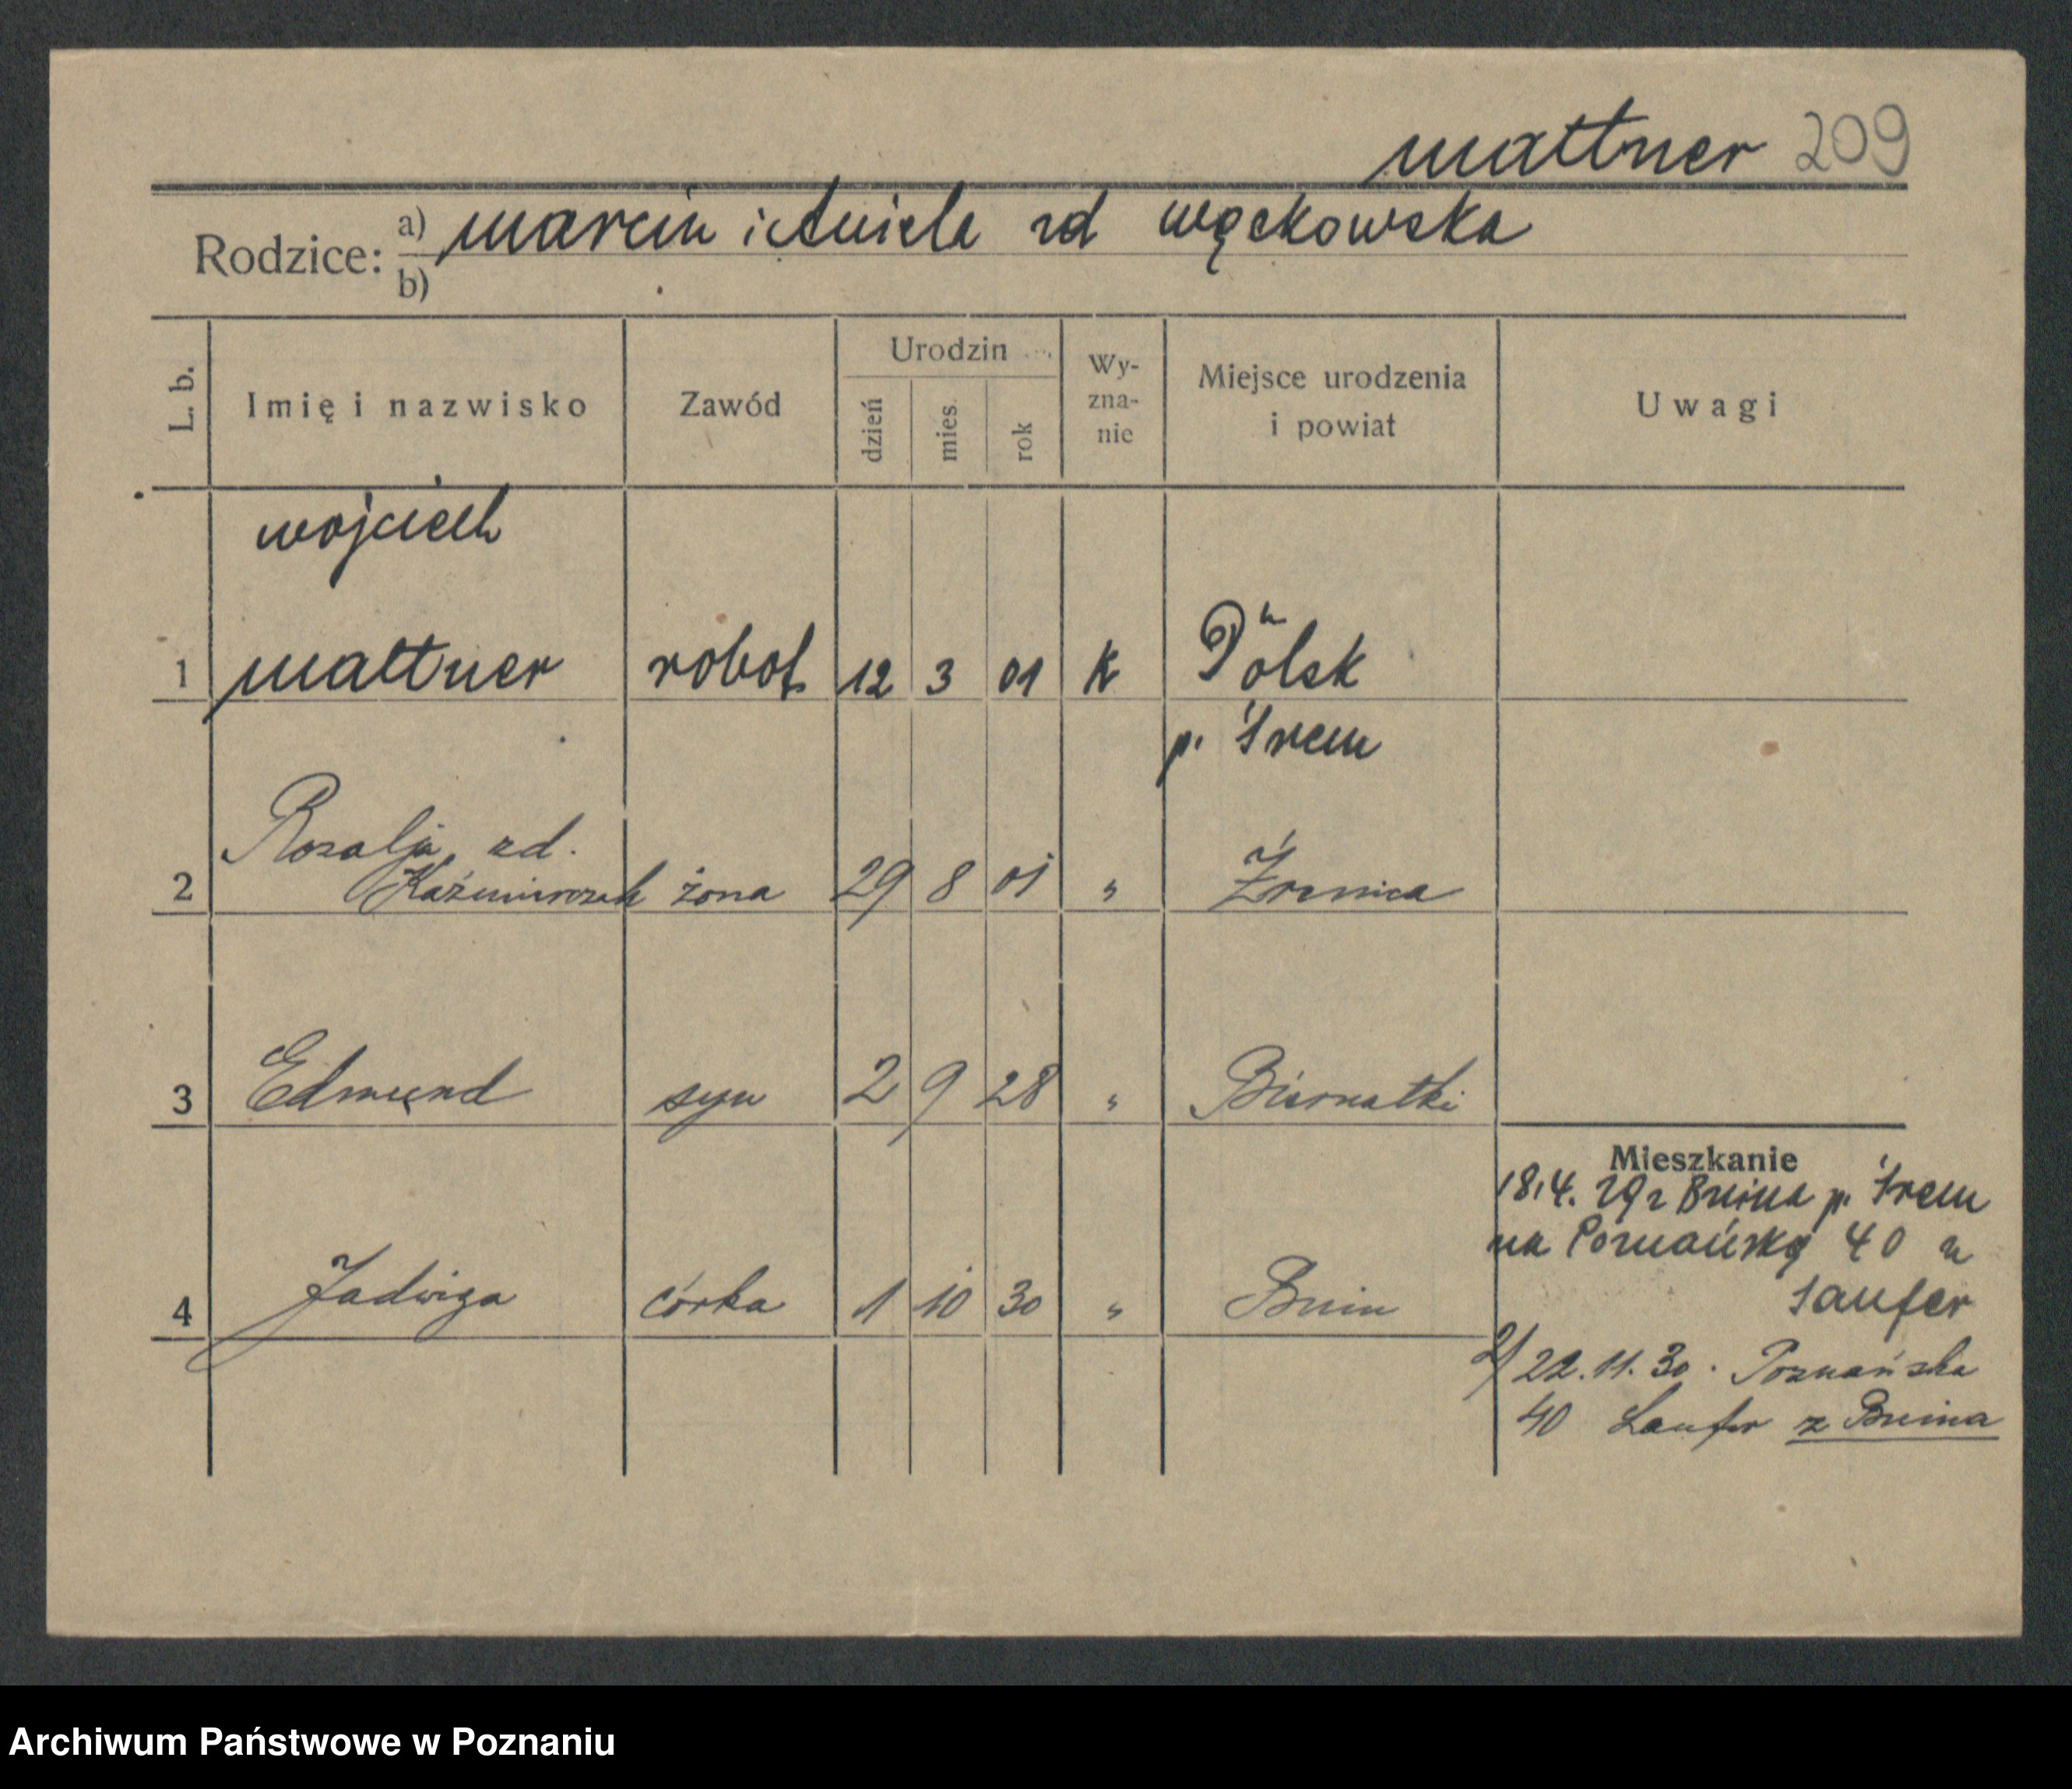 mattner 209
Rodzice: a) marcin i Aniela zd węckowska
b)
L. b.
Imię i nazwisko
Zawód
Urodzin
dzień
mies.
rok
Wy-
zna-
nie
Miejsce urodzenia
i powiat
Uwagi
wojciech
1 mattner robot. 12 3 01 K Polsk
p. Śrem
Rozalja zd.
2 Kaźmierczak żona 29 8 01 "
3 Edmund syn 2 9 28 " Biernatki
4 Jadwiga córka 1 10 30 " Bnin
Mieszkanie
18.4. 29 z Bnina p. Śrem
na Poznańską 40 u
Laufer
2/ 22.11.30. Poznańska
40 Laufer z Bnina
Archiwum Państwowe w Poznaniu